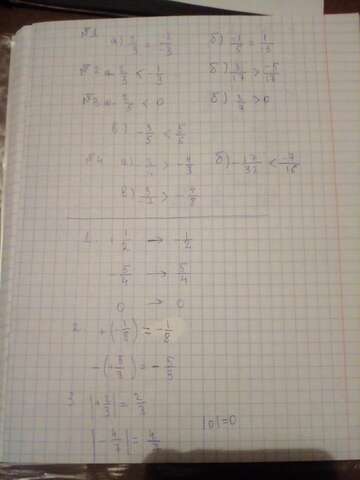 №1 а) = -1/3 б) -1/5 = 1/15
№2 а -2/3 < -1/3 б) 3/17 > -5/17
№3 а -2/5 < 0 б) 3/7 > 0
в) -3/5 < 2/5
№4 а) > -4/3 б) -17/32 < -7/16
в) > -4/8
1. +1/2 → -1/2
-5/4 → 5/4
0 → 0
2. +(-1/8) = -1/8
-(+5/3) = -5/3
3. |+2/3| = 2/3
|0|=0
|-4/7| = 4/7